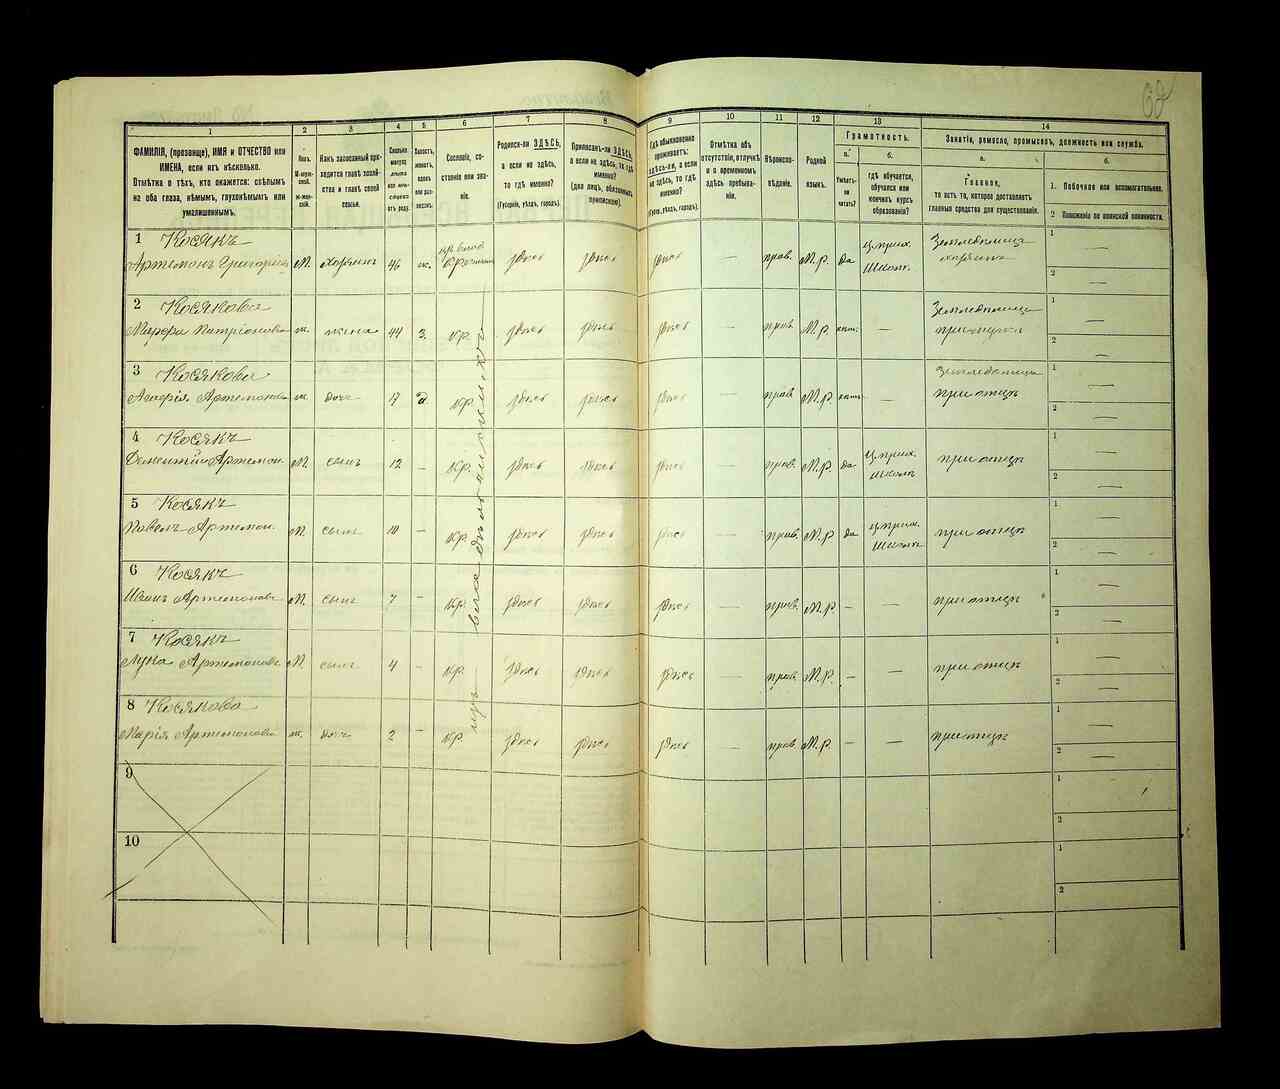 62
1
2
3
4
5
6
7
8
9
10
11
12
13
14
ФАМИЛІЯ, (прозвище), ИМЯ и ОТЧЕСТВО или
ИМЕНА, если ихъ нѣсколько.
Отмѣтка о тѣхъ, кто окажется: слѣпымъ
на оба глаза, нѣмымъ, глухонѣмымъ или
умалишеннымъ.
Полъ.
М-мужской.
Ж-женскій.
Какъ записанный приходится главѣ хозяйства и главѣ своей семьи.
Сколько минуло лѣтъ или мѣсяцевъ отъ роду.
Холостъ, женатъ, вдовъ или разведенъ.
Сословіе, состояніе или званіе.
Родился-ли ЗДѢСЬ,
а если не здѣсь,
то гдѣ именно?
(Губернія, уѣздъ, городъ).
Приписанъ-ли ЗДѢСЬ,
а если не здѣсь, то гдѣ
именно?
(для лицъ, обязанныхъ
припискою).
Гдѣ обыкновенно
проживаетъ:
здѣсь-ли, а если
не здѣсь, то гдѣ
именно?
(Губ., уѣздъ, городъ).
Отмѣтка объ
отсутствіи, отлучкѣ
и о временномъ
здѣсь пребываніи.
Вѣроисповѣданіе.
Родной
языкъ.
Грамотность.
а.
Умѣетъ-ли
читать?
б.
гдѣ обучается,
обучался или
кончилъ курсъ
образованія?
Занятіе, ремесло, промыселъ, должность или служба.
а.
Главное,
то есть то, которое доставляетъ
главныя средства для существованія.
б.
1. Побочное или вспомогательное.
2 Положеніе по воинской повинности.
1 Косякъ
Артемонъ Григорьев М. хозяинъ 46 ж. здѣсь здѣсь здѣсь — прав. М.р. да ц. прих. школ. Земледѣлецъ хозяинъ 1 — 2 —
2 Косякова
ж. жена 44 з. кр. здѣсь здѣсь здѣсь — прав. М.р. — Земледѣлица 1 — 2 —
3 Косякова
Артемонова ж. дочь 17 д кр. здѣсь здѣсь здѣсь — прав М.р. — при отцѣ 1 — 2 —
4 Косякъ
Дементій Артемон. М. сынъ 12 - кр. здѣсь здѣсь здѣсь — прав. М.р. да ц. прих. школ при отцѣ 1 — 2 —
5 Косякъ
Павелъ Артемон. М. сынъ 10 - кр. здѣсь здѣсь здѣсь — прав. М.р да ц. прих. школ при отцѣ 1 — 2 —
6 Косякъ
Иванъ Артемоновъ М. сынъ 7 - кр. здѣсь здѣсь здѣсь — прав. М.р. - — при отцѣ 1 — 2 —
7 Косякъ
Лука Артемоновъ М. сынъ 4 - кр. здѣсь здѣсь здѣсь — прав. М.р. - — при отцѣ 1 — 2 —
8 Косякова
Марія Артемонова ж. дочь 2 - кр. здѣсь здѣсь здѣсь — прав. М.р. — — при отцѣ 1 — 2 —
9 1 2
10 1 2